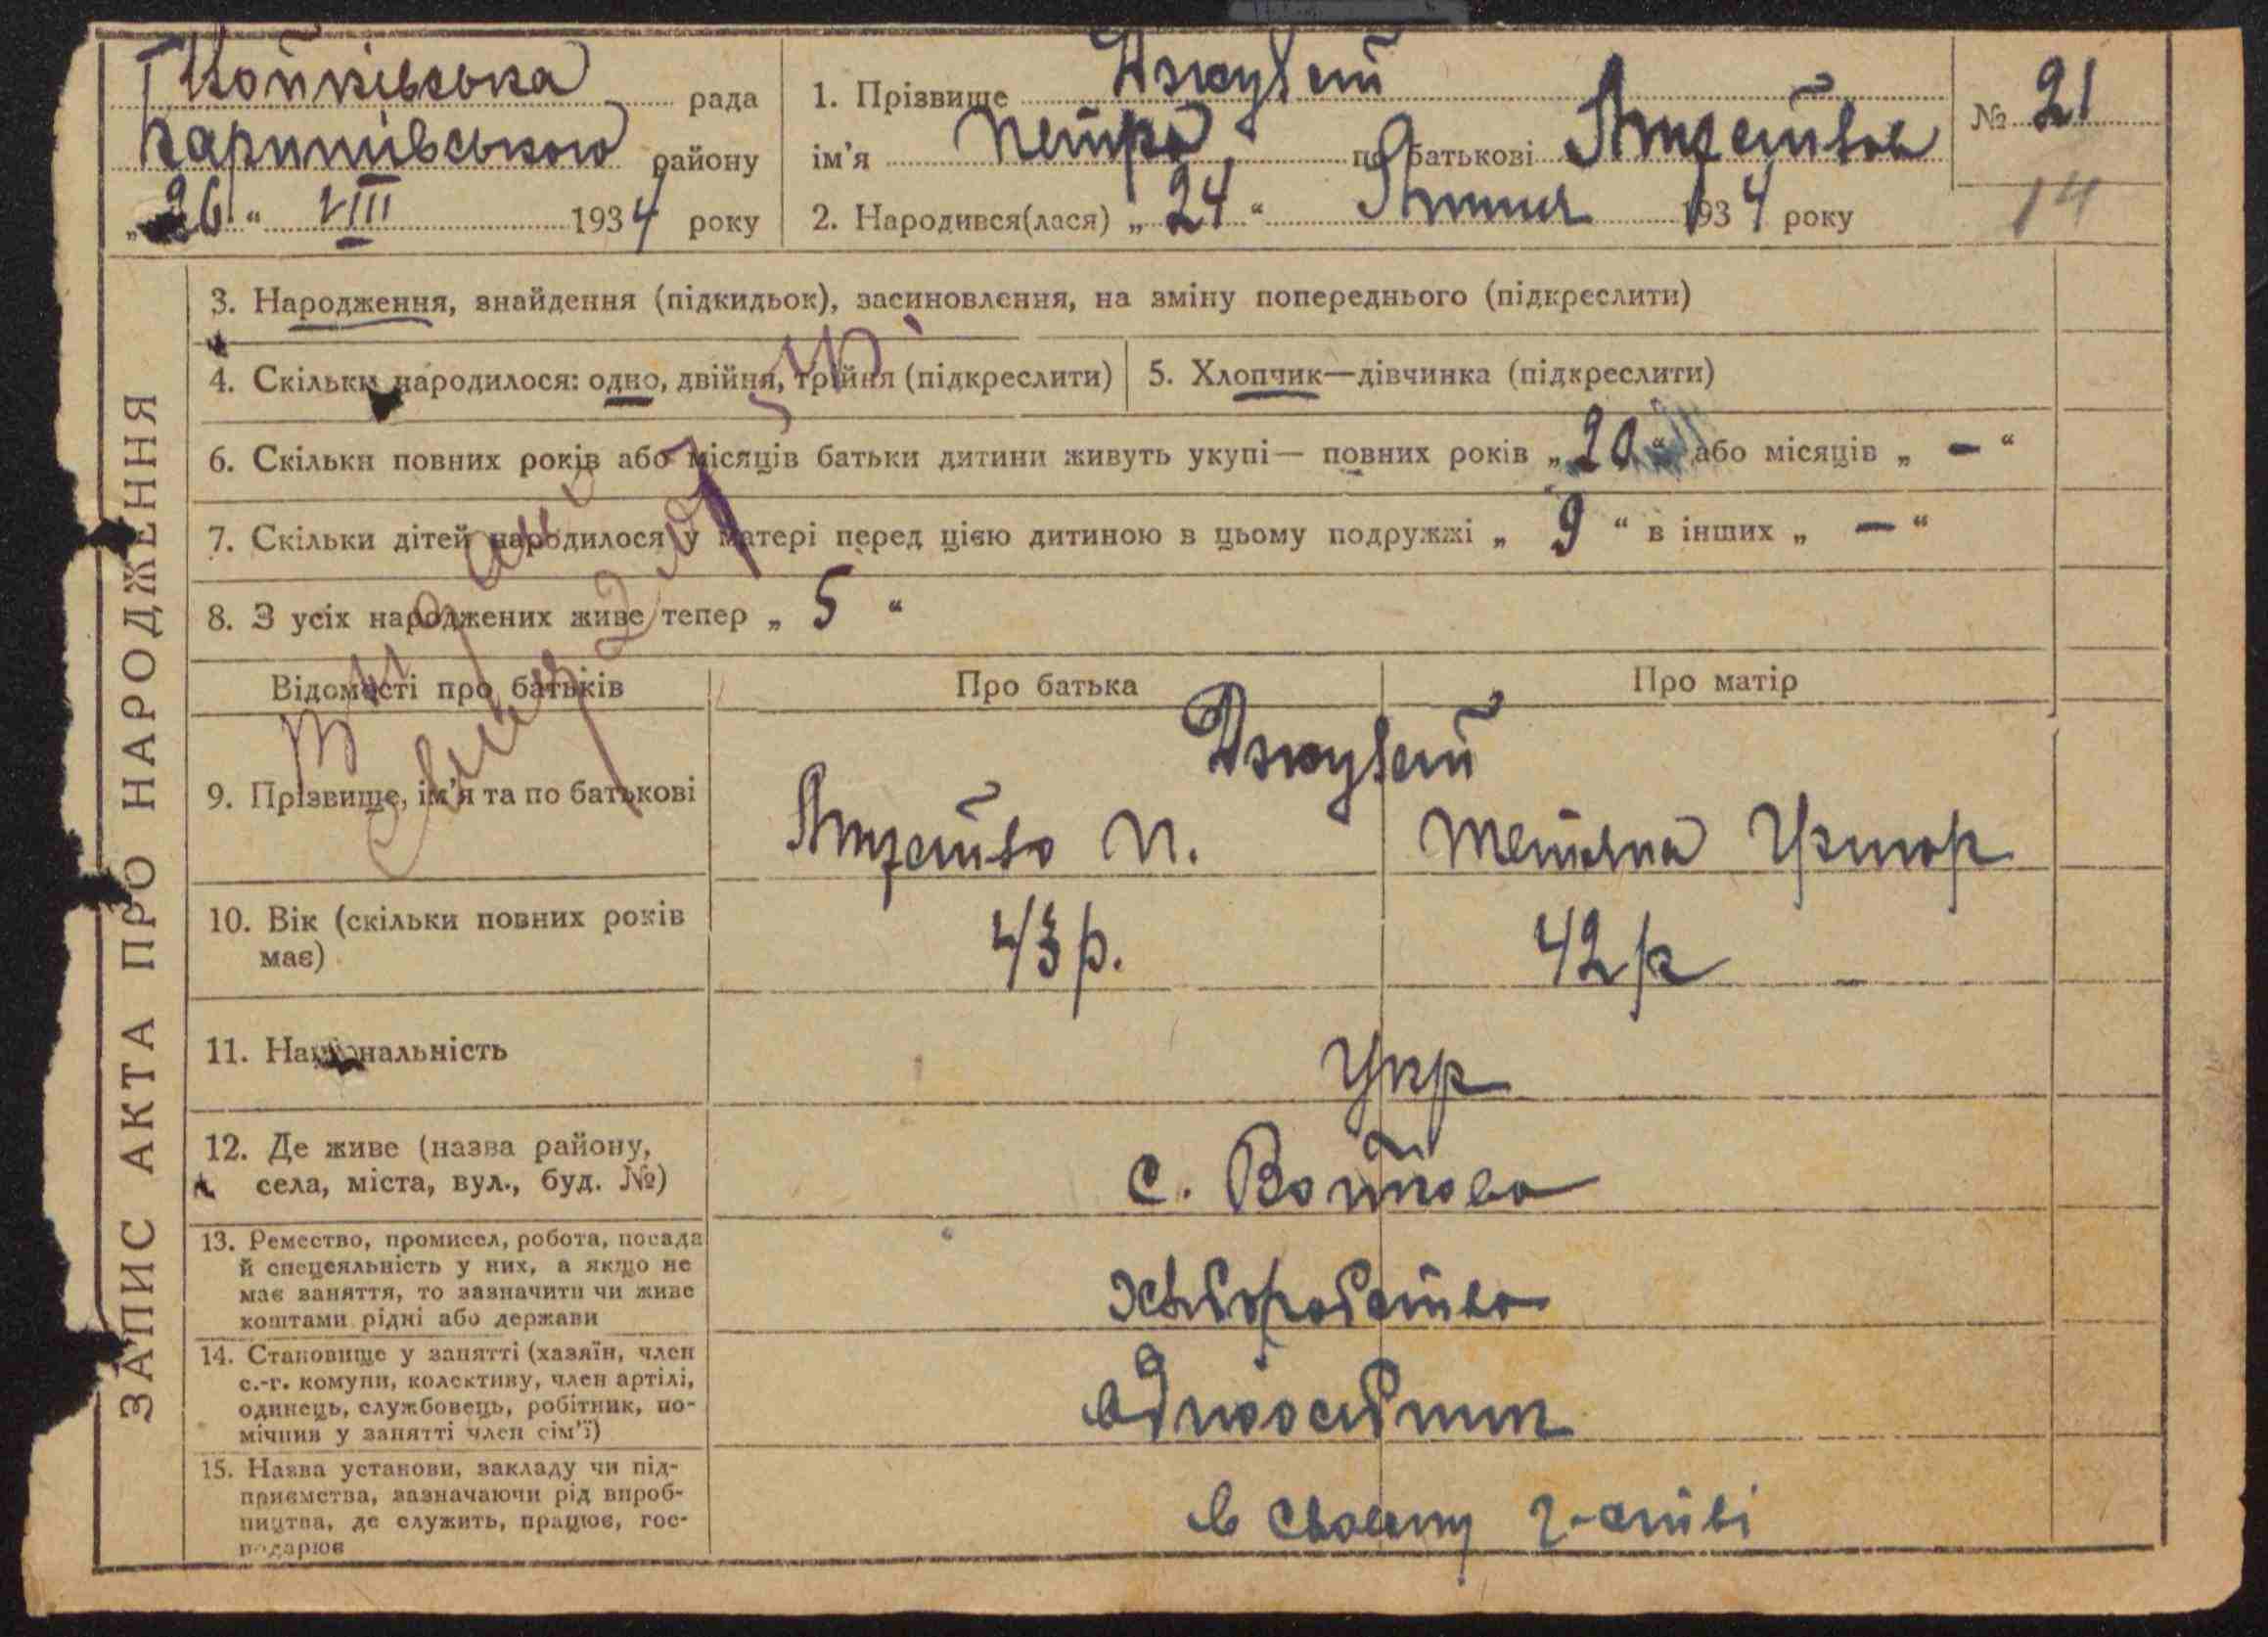 рада
Каришківського району
„26“ VIII 1934 року
1. Прізвище
ім'я Петро по батькові
2. Народився(лася) „24“ 1934 року
№ 21
14
ЗАПИС АКТА ПРО НАРОДЖЕННЯ
3. Народження, знайдення (підкидьок), засиновлення, на зміну попереднього (підкреслити)
4. Скільки народилося: одно, двійня, трійня (підкреслити)
5. Хлопчик—дівчинка (підкреслити)
6. Скільки повних років або місяців батьки дитини живуть укупі— повних років „20“ або місяців „ — “
7. Скільки дітей народилося у матері перед цією дитиною в цьому подружжі „ 9 “ в інших „ — “
8. З усіх народжених живе тепер „ 5 “
Відомості про батьків
Про батька
Про матір
9. Прізвище, ім'я та по батькові
П.
Тетяна
10. Вік (скільки повних років
має)
43 р.
42 р
11. Національність
Укр
12. Де живе (назва району,
села, міста, вул., буд. №)
с. Войтово
13. Ремество, промисел, робота, посада
й спецеяльність у них, а якщо не
має заняття, то зазначити чи живе
коштами рідні або держави
хліборобство
14. Становище у занятті (хазяїн, член
с.-г. комуни, колективу, член артілі,
одинець, службовець, робітник, по-
мічник у занятті член сім'ї)
одноосібник
15. Назва установи, закладу чи під-
приємства, зазначаючи рід вироб-
ництва, де служить, працює, гос-
подарює
в своєму г-стві